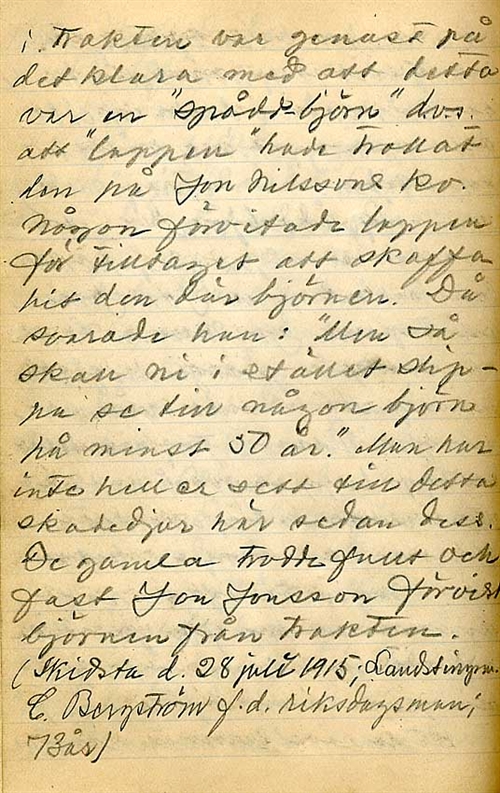 i trakten var genast på
det klara med att detta
var en "spådd-björn" d.v.s.
att "lappen" hade trollat
den på Jon Nilssons ko.
Någon förvitade lappen
för tilltaget att skaffa
hit den där björnen. Då
svarade han: "Men så
skall ni i stället slip-
pa se till någon björn
på minst 50 år." Man har
inte heller sett till detta
skadedjur här sedan dess.
De gamla trodde fullt och
fast Jon Jonsson förvist
björnen från trakten.
(Skidsta d. 28 juli 1915; Landstingsm.
C. Bergström f.d. riksdagsman;
73 år)